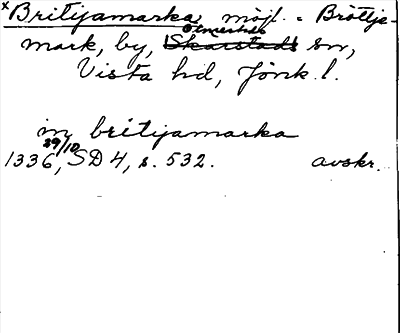 x Britijamarka, möjl. = Bröttje-
mark, by, Ölmestads sn,
Vista hd, Jönk. l.
in britijamarka
1336 29/10, SD 4, s. 532. avskr.